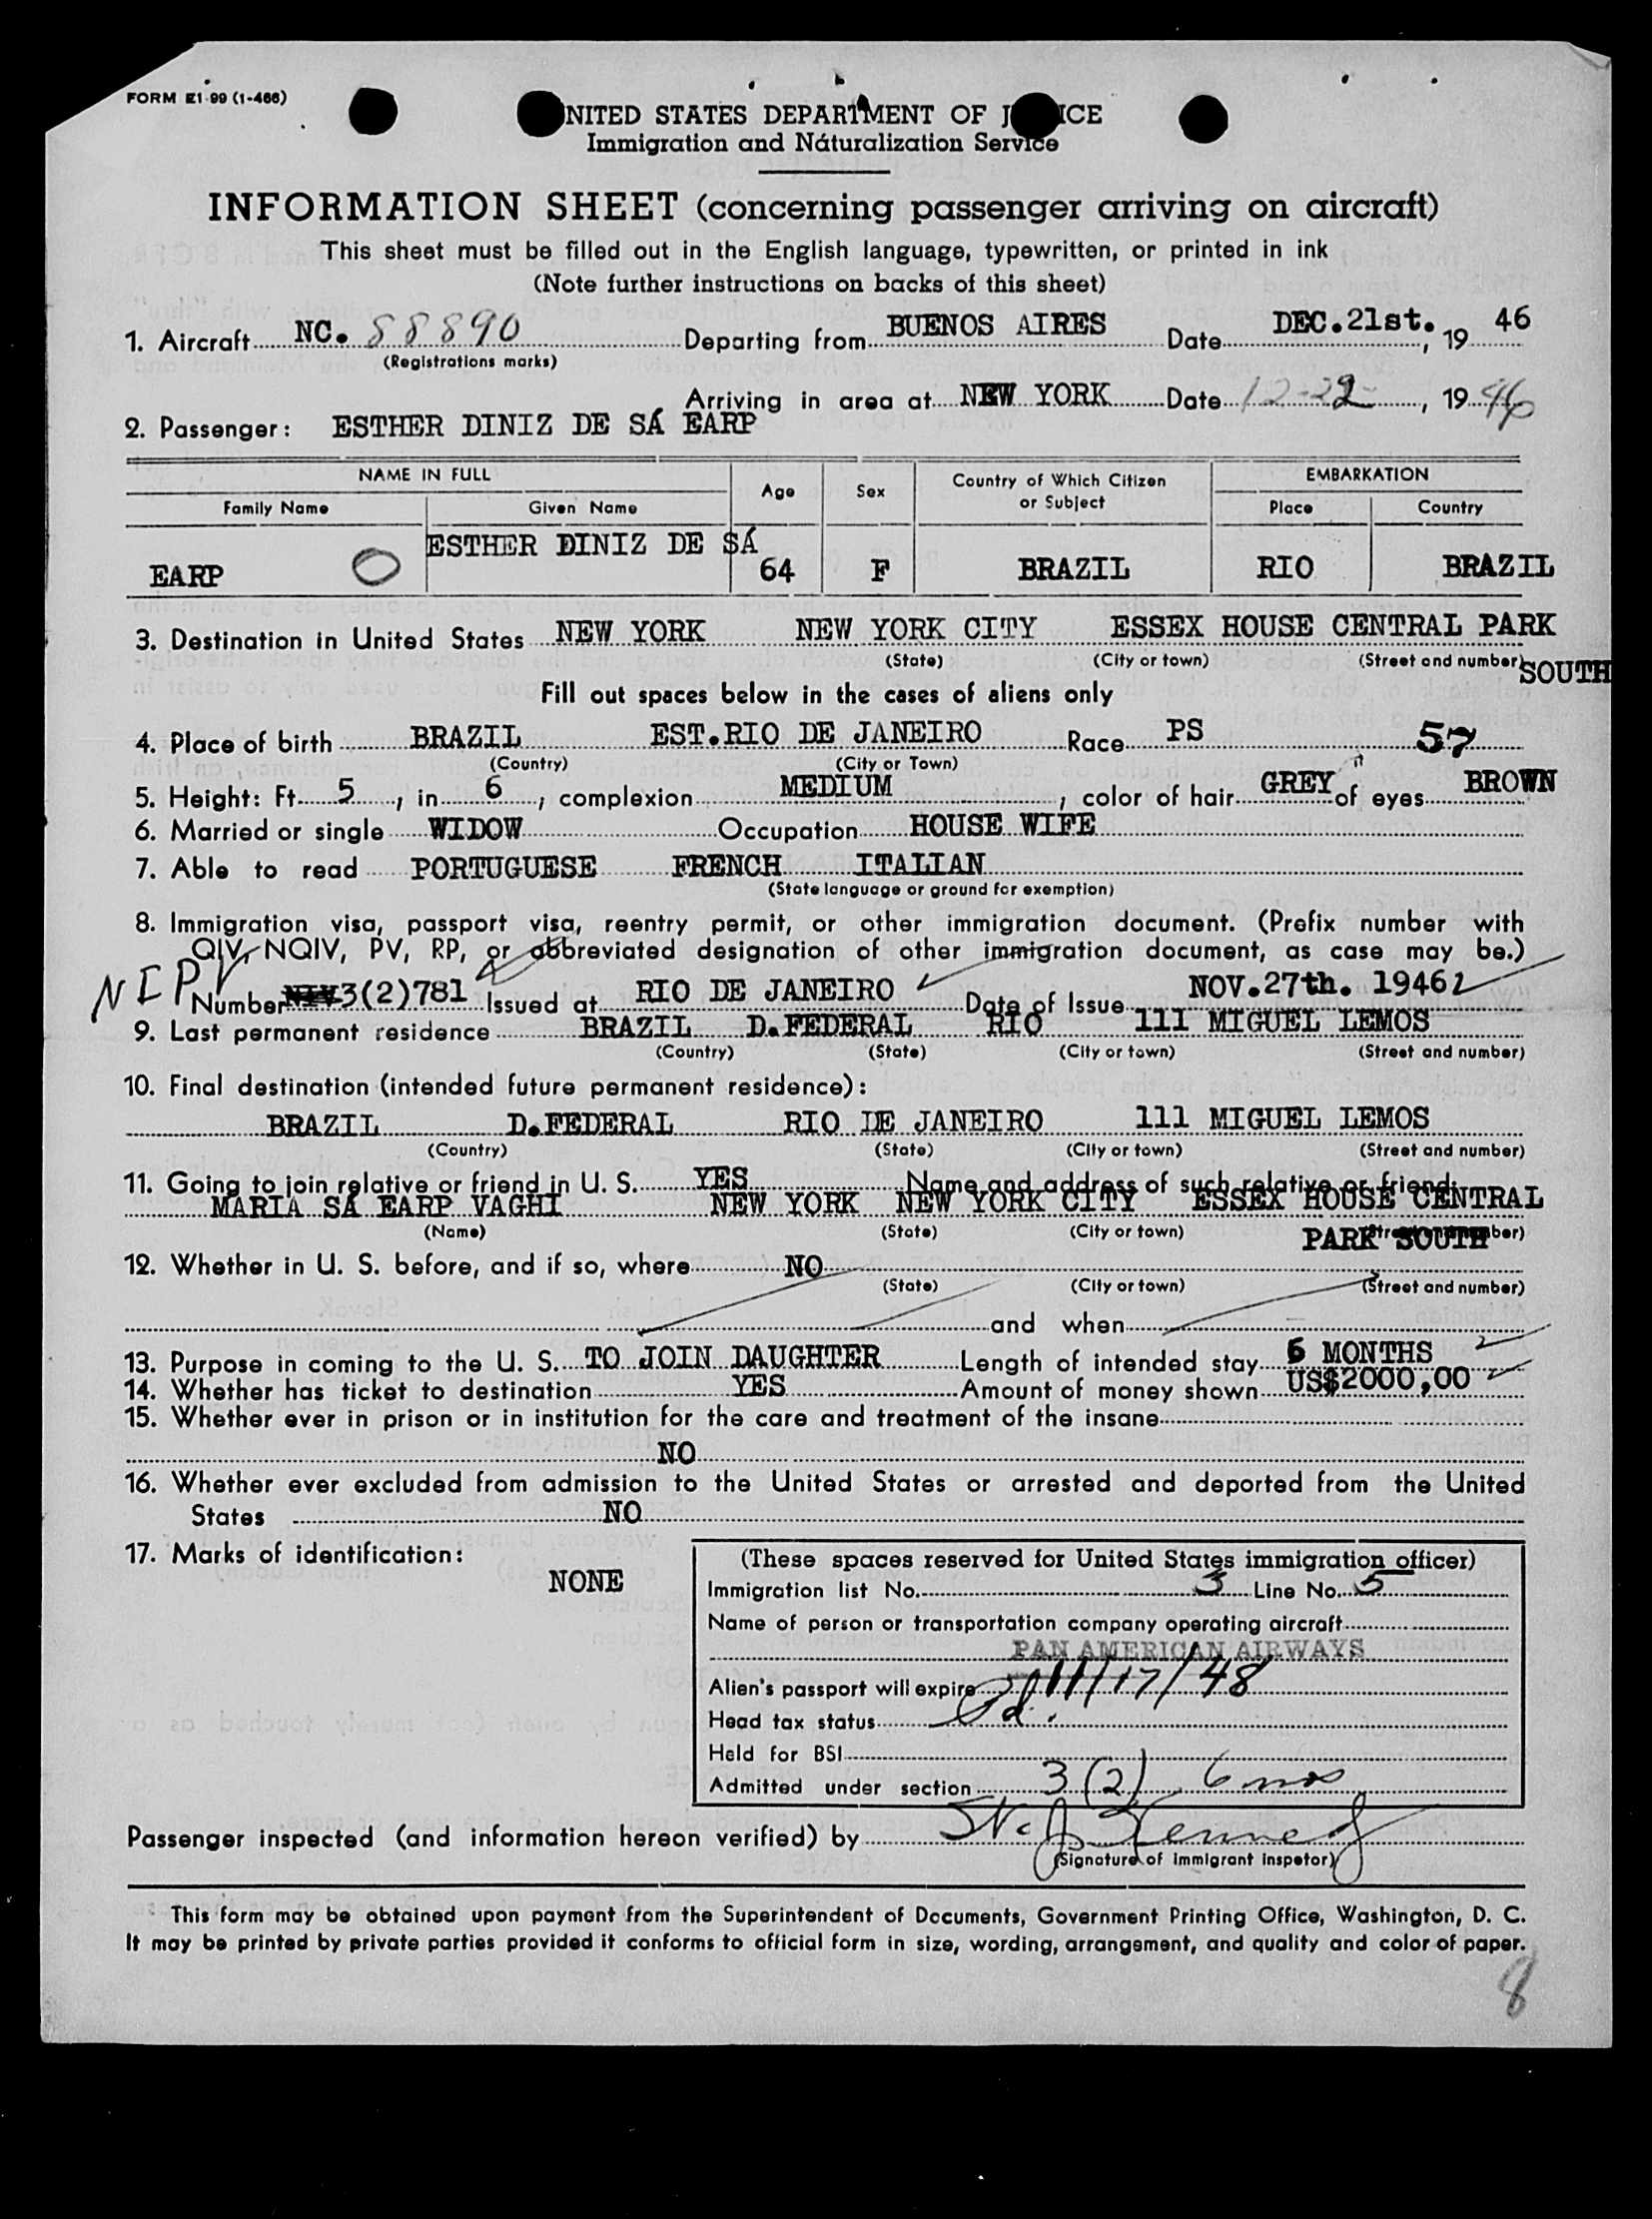 FORM E1-99 (1-466)
UNITED STATES DEPARTMENT OF J ICE
Immigration and Naturalization Service
INFORMATION SHEET (concerning passenger arriving on aircraft)
This sheet must be filled out in the English language, typewritten, or printed in ink
(Note further instructions on backs of this sheet)
1. Aircraft NC. 88890 Departing from BUENOS AIRES Date DEC.21st., 19 46
(Registrations marks)
Arriving in area at NEW YORK Date 12-22, 19 46
2. Passenger: ESTHER DINIZ DE SÁ EARP
NAME IN FULL Age Sex Country of Which Citizen or Subject EMBARKATION
Family Name Given Name Place Country
EARP ESTHER DINIZ DE SÁ 64 F BRAZIL RIO BRAZIL
3. Destination in United States NEW YORK NEW YORK CITY ESSEX HOUSE CENTRAL PARK SOUTH
(State) (City or town) (Street and number)
Fill out spaces below in the cases of aliens only
4. Place of birth BRAZIL EST.RIO DE JANEIRO Race PS 57
(Country) (City or Town)
5. Height: Ft. 5, in. 6, complexion MEDIUM, color of hair GREY of eyes BROWN
6. Married or single WIDOW Occupation HOUSE WIFE
7. Able to read PORTUGUESE FRENCH ITALIAN
(State language or ground for exemption)
8. Immigration visa, passport visa, reentry permit, or other immigration document. (Prefix number with
QIV, NQIV, PV, RP, or abbreviated designation of other immigration document, as case may be.)
NIPV Number 3(2)781 Issued at RIO DE JANEIRO Date of Issue NOV.27th. 1946
9. Last permanent residence BRAZIL D.FEDERAL RIO 111 MIGUEL LEMOS
(Country) (State) (City or town) (Street and number)
10. Final destination (intended future permanent residence):
BRAZIL D.FEDERAL RIO DE JANEIRO 111 MIGUEL LEMOS
(Country) (State) (City or town) (Street and number)
11. Going to join relative or friend in U. S. YES Name and address of such relative or friend:
MARIA SÁ EARP VAGHI NEW YORK NEW YORK CITY ESSEX HOUSE CENTRAL PARK SOUTH
(Name) (State) (City or town)
12. Whether in U. S. before, and if so, where NO
(State) (City or town) (Street and number)
and when
13. Purpose in coming to the U. S. TO JOIN DAUGHTER Length of intended stay 6 MONTHS
14. Whether has ticket to destination YES Amount of money shown US$2000,00
15. Whether ever in prison or in institution for the care and treatment of the insane
NO
16. Whether ever excluded from admission to the United States or arrested and deported from the United
States NO
17. Marks of identification: NONE
(These spaces reserved for United States immigration officer)
Immigration list No. 3 Line No. 5
Name of person or transportation company operating aircraft
PAN AMERICAN AIRWAYS
Alien's passport will expire 11/17/48
Head tax status Pd.
Held for BSI
Admitted under section 3(2) 6 mos
Passenger inspected (and information hereon verified) by
(Signature of Immigrant Inspetor)
This form may be obtained upon payment from the Superintendent of Documents, Government Printing Office, Washington, D. C.
It may be printed by private parties provided it conforms to official form in size, wording, arrangement, and quality and color of paper.
8